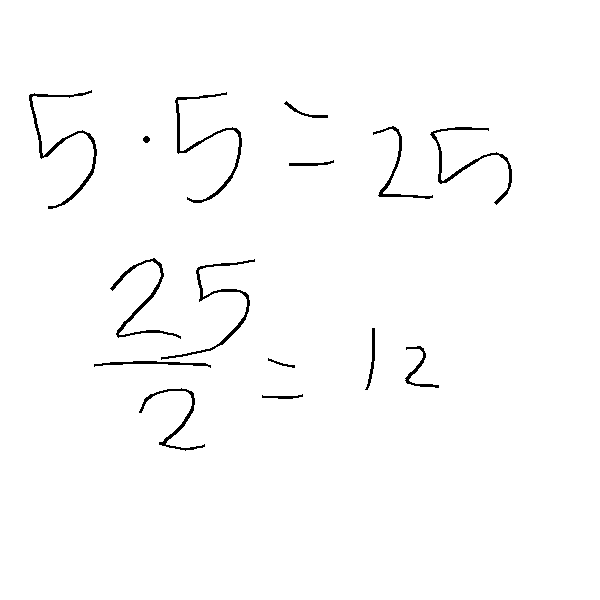 5 · 5 = 25
25/2 = 12